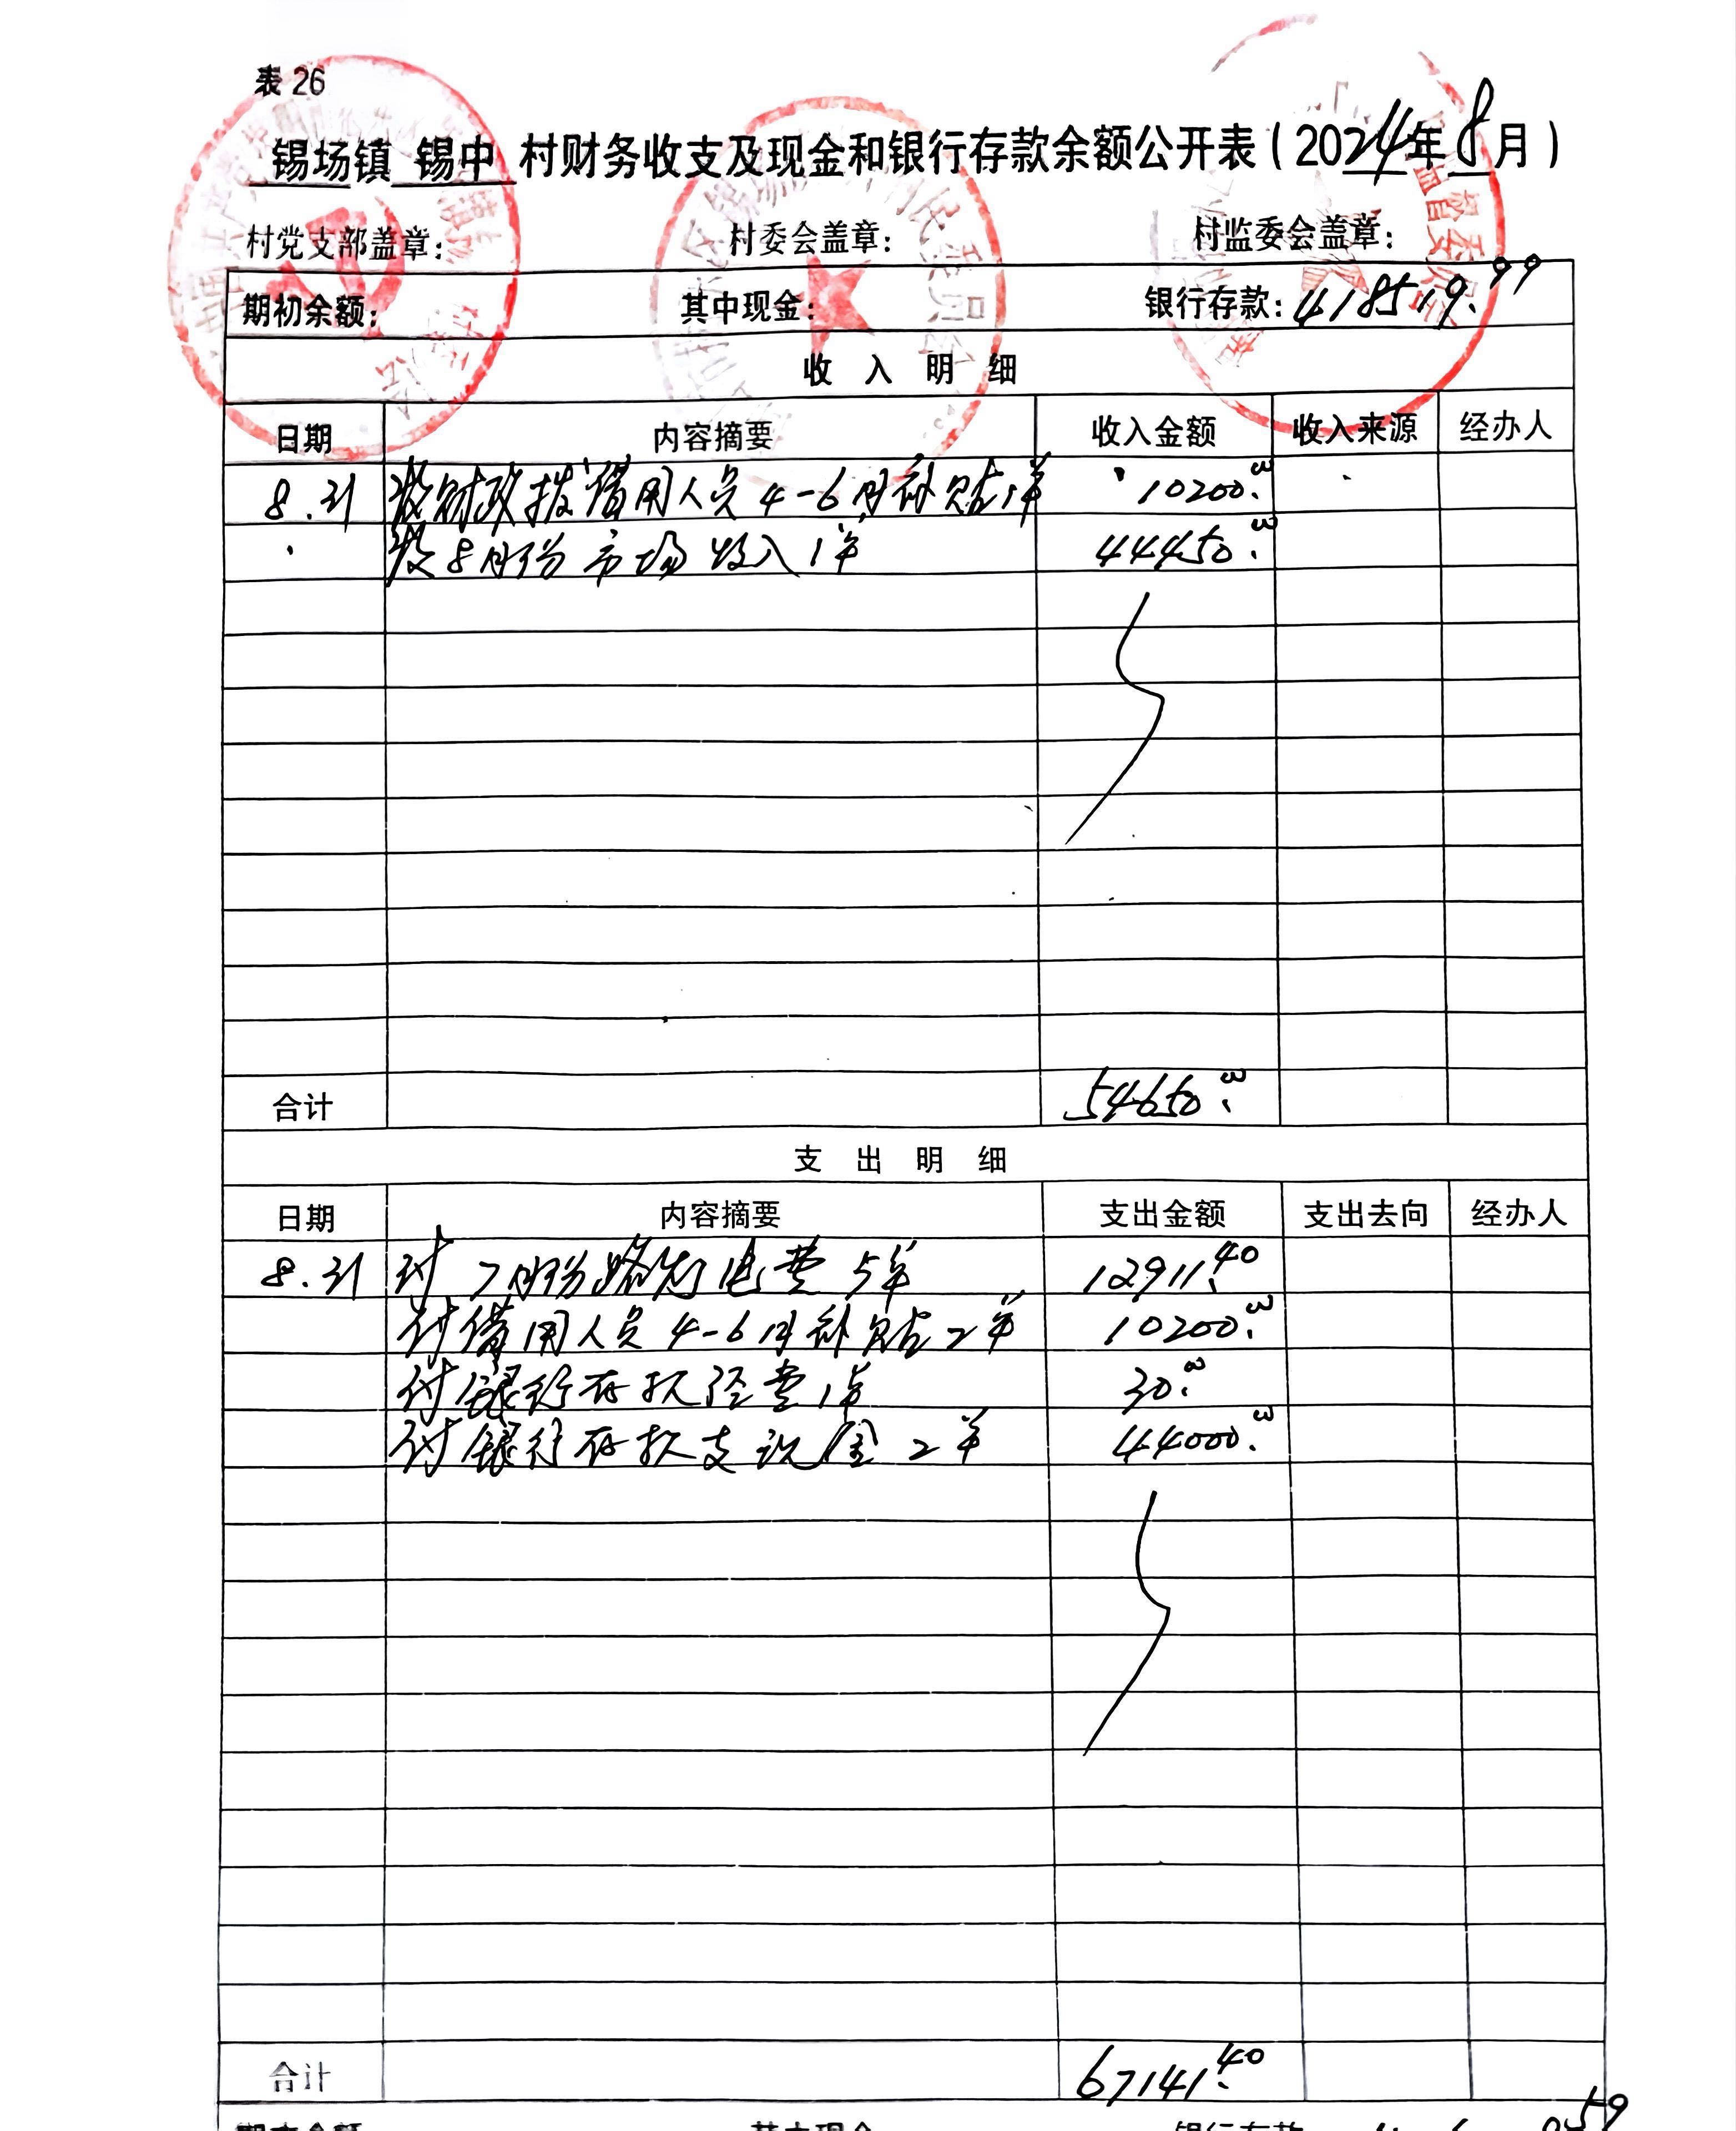 表 26
锡场镇 锡中 村财务收支及现金和银行存款余额公开表（2024年8月）
村党支部盖章： 村委会盖章： 村监委会盖章：
期初余额： 其中现金： 银行存款：418519.99
收入明细
日期 内容摘要 收入金额 收入来源 经办人
8.31 收财政拨借用人员4-6月补贴1单 10200.00
收8月份市场收入1单 44450.00
合计 54650.00
支出明细
日期 内容摘要 支出金额 支出去向 经办人
8.31 付7月份路灯电费5单 12911.40
付借用人员4-6月补贴2单 10200.00
付银行存款经费1单 30.00
付银行存款支现金2单 44000.00
合计 67141.40